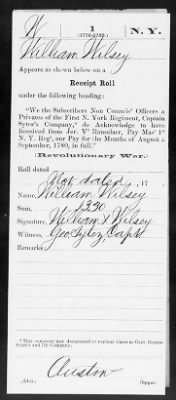 W 1 N.Y.
(1776-1783.)
William Wilsey
Appears as shown below on a
Receipt Roll
under the following heading:
"We the Subscribers Non Commis'd Officers &
Privates of the First N. York Regiment, Captain
Sytez's Company,* do Acknowledge to have
Received from Jer. V' Ranselaer, Pay Mas' 1st
N. Y. Reg', our Pay for the Months of August &
September, 1780, in full."
Revolutionary War.
Roll dated
Not dated, 17 .
Name, William Wilsey
Sum, 330
Signature, William X Wilsey
Witness, Geo. Sytez, Capt.
Remarks:
*This company was designated at various times as Capt. George
Sytez's and
Austin
Copyist.